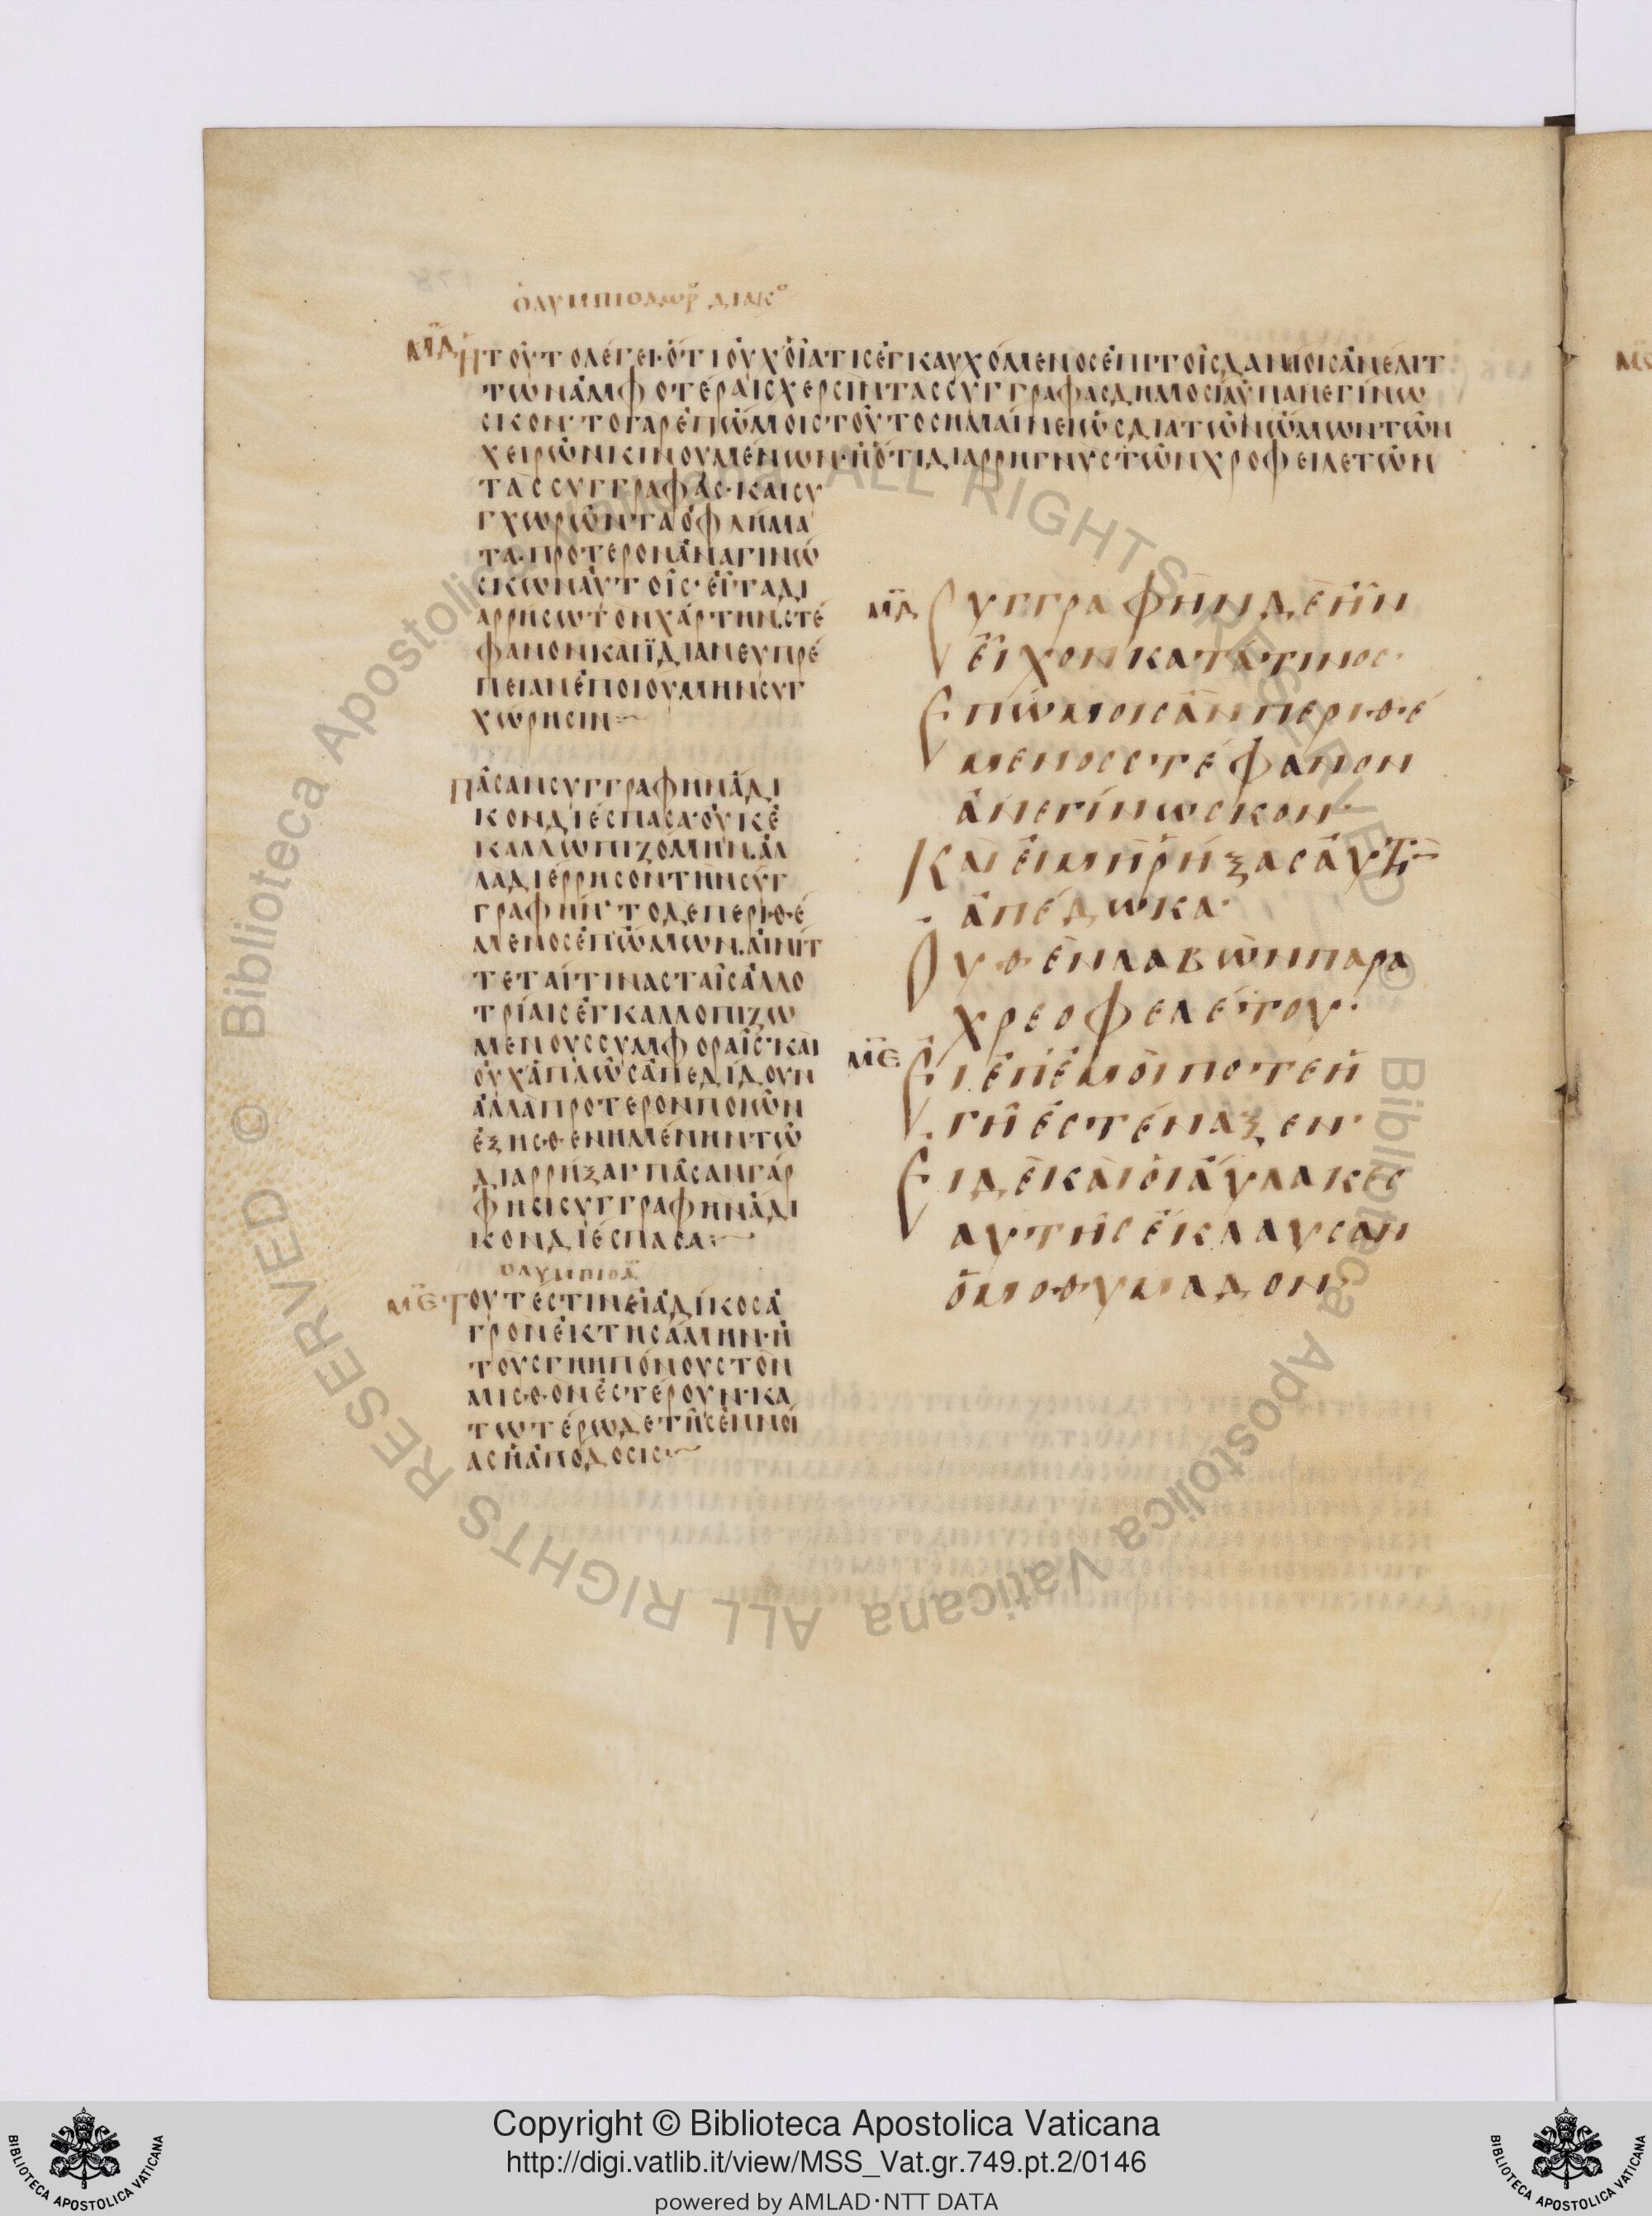 ὀλυμπιοδωρ διακο
μδ ἢ τοῦτο λέγει· ὅτι οὐχ οἷά τις ἐγκαυχόμενος ἐπὶ τοῖς δανίοις ἀνελιτ
των ἀμφοτέραις χερσὶν τὰς συγγραφὰς δημοσίᾳ ὑπανεγίνω
σκον· το γὰρ ἐπ' ὤμοις τοῦτο σημαίνει ὡς διὰ τῶν ὤμων τῶν
χειρῶν κινουμένων· ἢ ὅτι διαρρηγνὺς τῶν χροφειλετῶν
τὰς συγγραφάς· καὶ συ
γχωρῶν τὰ ὀφλήμα
τα· προτερον ἀναγινώ
σκων αὐτοῖς· εἶτα δι
αρρήσω τὸν χάρτην. στέ
φανον καὶ ἰδίαν ευπρέ
πειαν ἐποιούμην συγ
χώρησιν
πᾶσαν συγγραφὴν ἄδι
κον διέσπασα· οὐκ ἐ
καλλωπιζόμην. ἀλ
λὰ διέρρησον τὴν συγ
γραφήν· το δε περιθέ
μενος ἐπ' ὤμων. αἰνίτ
τεται τινας ταῖς ἀλλο
τρίαις ἐγκαλλοπιζω
μενους συμφοραῖς· καὶ
οὐχ ἁπλῶς ἀπεδίδουν
ἀλλὰ προτερον ποιῶν
ἐξησθενημένην τῶ
διαρρῆξαι· πᾶσαν γάρ
φησι συγγραφὴν ἄδι
κον διέσπασα
ολυμπιοδ
με τουτέστιν εἰ ἀδίκος ἀ
γρὸν ἐκτησάμην· ἢ
τοὺς γηπόνους τὸν
μισθὸν ἐστέρουν· κα
τωτέρω δε τῆς ἐννοί
ας ἡ ἀπόδοσις
μδ Συγγραφὴν δὲ ἣν
εἶχον κατά τινος·
Ἐπ' ὤμοις ἂν περιθέ
μενος στέφανον
ἀνεγίνωσκον·
Καὶ εἰ μὴ ῥήξας αὐτὴν
ἀπέδωκα·
Οὐθὲν λαβὼν παρα
χρεοφελέτου·
με Εἰ ἐπ' ἐμοί ποτε ἡ
γῆ ἐστέναξεν·
Εἰ δὲ καὶ οἱ αὔλακες
αὐτῆς ἔκλαυσαν
ὁμοθυμαδον·
Copyright © Biblioteca Apostolica Vaticana
http://digi.vatlib.it/view/MSS_Vat.gr.749.pt.2/0146
powered by AMLAD·NTT DATA
BIBLIOTECA APOSTOLICA VATICANA
BIBLIOTECA APOSTOLICA VATICANA
© Biblioteca Apostolica Vaticana ALL RIGHTS RESERVED
© Biblioteca Apostolica Vaticana ALL RIGHTS RESERVED